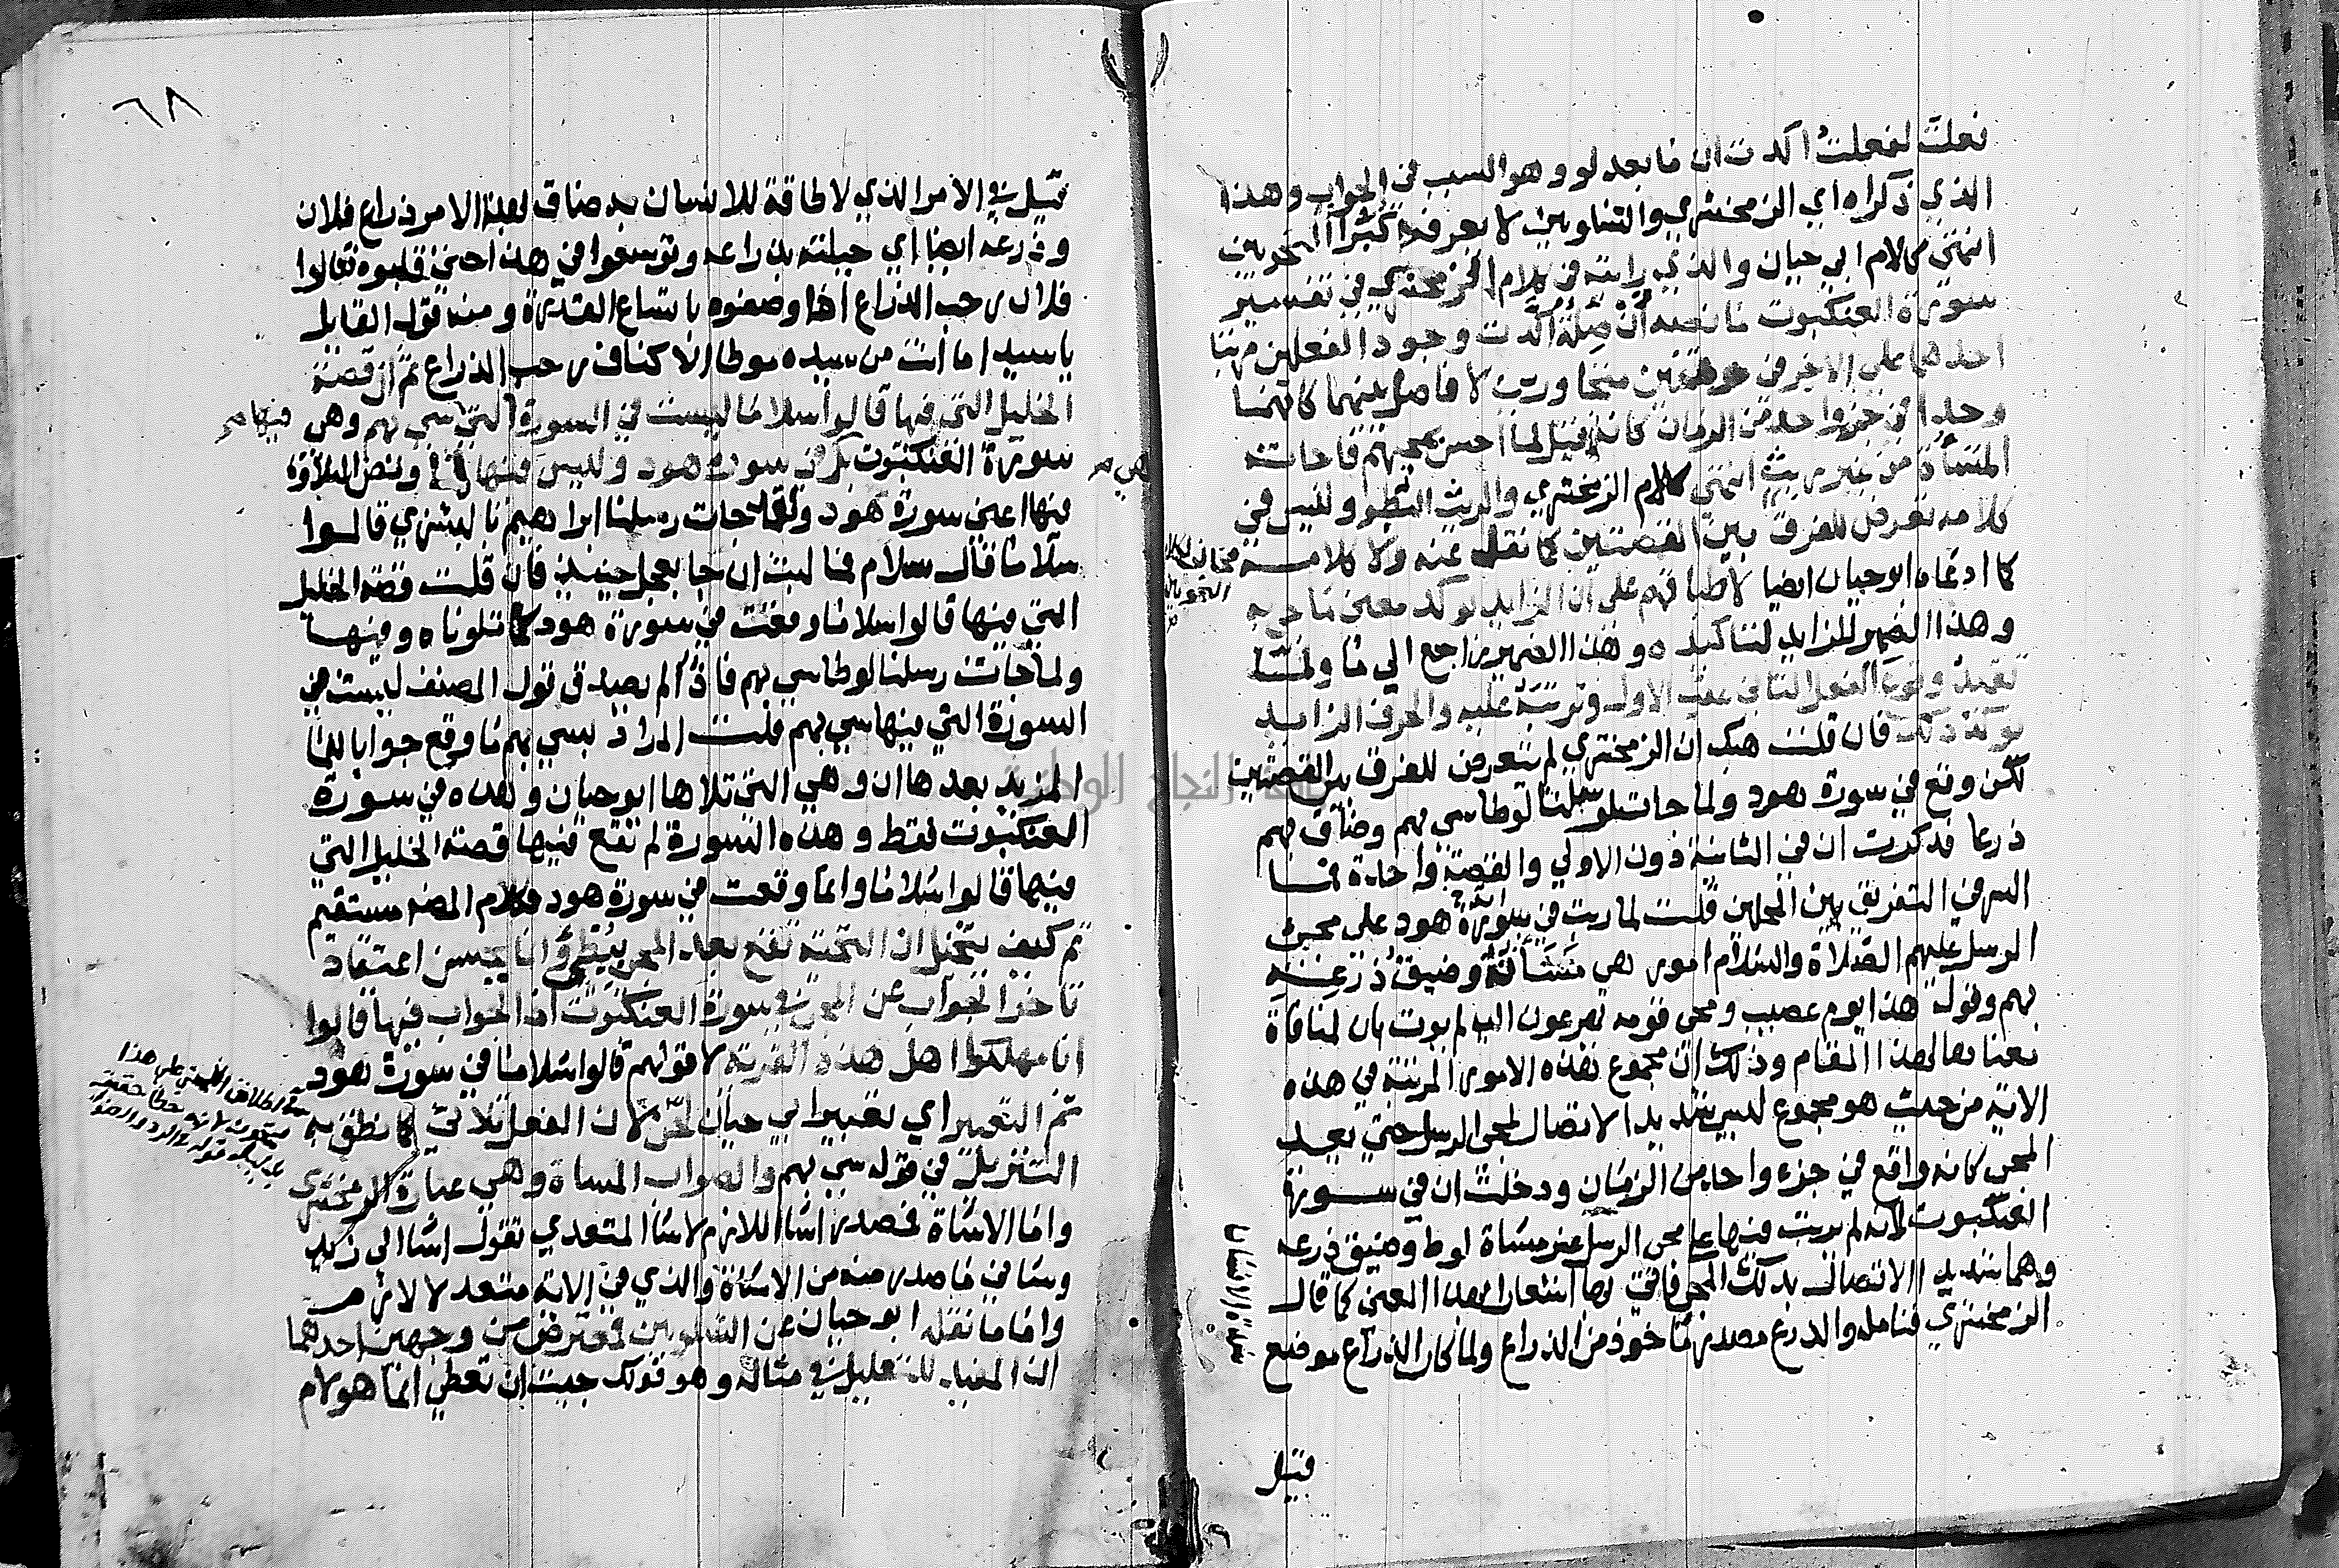 فعلت لفعلت اكدت ان ما بعد لو وهو السبب في الجواب وهذا
الذي ذكراه اي الزمخشري والشلوبين لا يعرفه كبرآ النحويين
انتهى كلام ابي حيان والذي رايته في كلام الزمخشري في تفسير
سورة العنكبوت ما نصه أن صلة أكدت وجود الفعلين مرتبا
احدهما على الاخر في وقتين متجاورين لا فاصل بينهما كانهما
وجدا في جزء واحد من الزمان كانه قيل لما احس بمجيهم فاجاته
المساة من غير ريث انتهى كلام الزمخشري والريث البطو وليس في
كلامه تعرض للفرق بين القصتين كما نقل عنه ولا كلامه
كما ادعاه ابو حيان ايضا لاطباقهم على ان الزايد يوكد معنى ما جي به
وهذا الضمير للزايد لتاكيده وهذا الضمير راجع الي ما ولما
تفيد وقوع الفعل الثاني عقب الاول وترتبه عليه والحرف الزايد
يوكد ذلك فان قلت هب ان الزمخشري لم يتعرض للفرق بين القصتين
لكن وقع في سورة هود ولما جات رسلنا لوطا سي بهم وضاق بهم
ذرعا فذكرت ان في الثانية دون الاولي والقصة واحدة فما
السر في التفريق بين المحلين قلت لما رتب في سورة هود على مجيء
الرسل عليهم الصلاة والسلام امور هي مساته وضيق ذرعه
بهم وقول هذا يوم عصيب ومجي قومه يهرعون اليه لم يوت بان لمنافاة
معناها لهذا المقام وذلك ان مجموع هذه الامور المرتبة في هذه
الاية من حيث هو مجموع ليس شديد الاتصال لمجي الرسل حتي يعد
المجي كانه واقع في جزء واحد من الزمان ودخلت ان في سورة
العنكبوت لانه لم يرتب فيها على مجي الرسل غير مساة لوط وضيق ذرعه
وهما شديد االاتصال بذلك المجي فاتي بها اشعارا بهذا المعنى كما قال
الزمخشري فتامله والذرع مصدر ماخوذ من الذراع ولما كان الذراع موضع
قيل
٦٨
قيل في الامر الذي لا طاقة للانسان به ضاق لهذا الامر ذراع فلان
وذرعه ايضا اي حيلته بذراعه وتوسعوا في هذا حتى قلبوه فقالوا
فلان رحب الذراع اذا وصفوه باتساع القدرة ومنه قول القايل
يا سيدا ما أنت من سيد موطا الاكناف رحب الذراع ثم ان قصة
الخليل التي فيها قالوا سلاما ليست في السورة التي سي بهم وهي
فيها صح
سورة العنكبوت بل في سورة هود وليس فيها ونص التلاوة
هي صح
فيها اعني سورة هود ولقد جات رسلنا ابراهيم بالبشري قالوا
سلاما قال سلام فما لبث ان جا بعجل حنيذ فان قلت قصة الخليل
التي فيها قالوا سلاما وقعت في سورة هود كما تلوناه وفيها
ولما جات رسلنا لوطا سي بهم فاذا لم يصدق قول المصنف ليست في
السورة التي فيها سي بهم قلت المراد بسي بهم ما وقع جوابا للما
المزيد بعدها ان وهي التي تلاها ابو حيان وهذه في سورة
العنكبوت فقط وهذه السورة لم تقع فيها قصة الخليل التي
فيها قالوا سلاما وانما وقعت في سورة هود فكلام المصنه مستقيم
ثم كيف يتخيل ان التحية تقع بعد المجي ببطؤ وانا يحسن اعتقاد
تاخر الجواب عن المجي في سورة العنكبوت اذ الجواب فيها قالوا
انا مهلكوا اهل هذه القرية لا قولهم قالوا سلاما في سورة هود
ثم التعبير اي تعبير ابي حيان لحن لان الفعل ثلاثي كما نطق به
التنزيل في قوله سي بهم والصواب المساة وهي عبارة الزمخشري
واما الاساة فمصدر اسا اللازم لاسا المتعدي تقول اسا الى زيد
وساني ما صدر منه من الاساة والذي في الاية متعد لا لازم
واما ما نقله ابو حيان عن الشلوبين فمعترض من وجهين احدهما
ان المفيد للتعليل في مثاله وهو قولك جيت ان تعطي انما هو لام